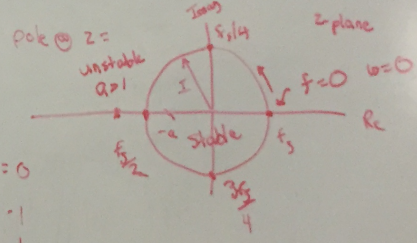 Imag
z-plane
pole @ z =
fs/4
unstable
a>1
f=0 ω=0
1
Re
-a
stable
fs
fs/2
= 0
3fs/4
-1